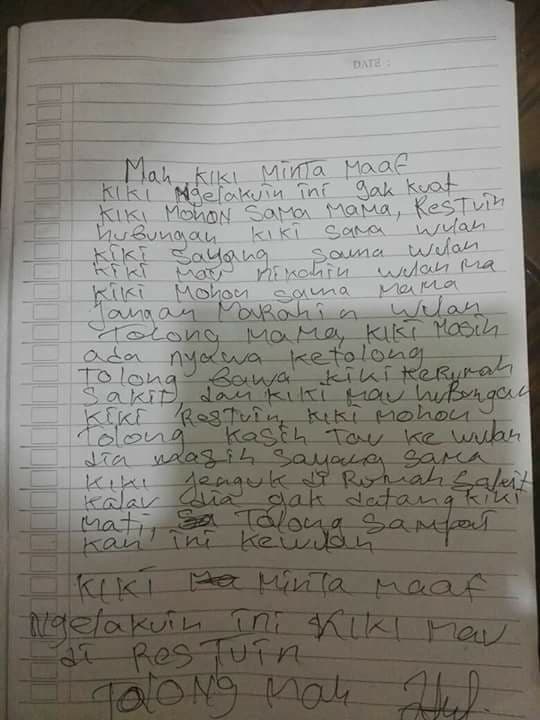 DATE :
Mah Kiki Minta Maaf
Kiki Ngelakuin ini gak kuat
Kiki Mohon Sama Mama, Restuin
hubungan Kiki sama wulan
Kiki sayang sama wulan
Kiki mau nikahin wulan ma
Kiki Mohon sama Mama
Jangan Marahin wulan
Tolong Mama, Kiki Masih
ada nyawa ketolong
Tolong bawa Kiki kerumah
Sakit, dan Kiki Mau hubungan
Kiki Restuin, Kiki Mohon
Tolong kasih Tau ke wulan
dia masih sayang sama
Kiki Jenguk di Rumah Sakit
Kalau dia gak datang Kiki
mati, Tolong Sampai
kan ini kewulan
Kiki Minta Maaf
Ngelakuin ini Kiki Mau
di Restuin
Tolong Mah